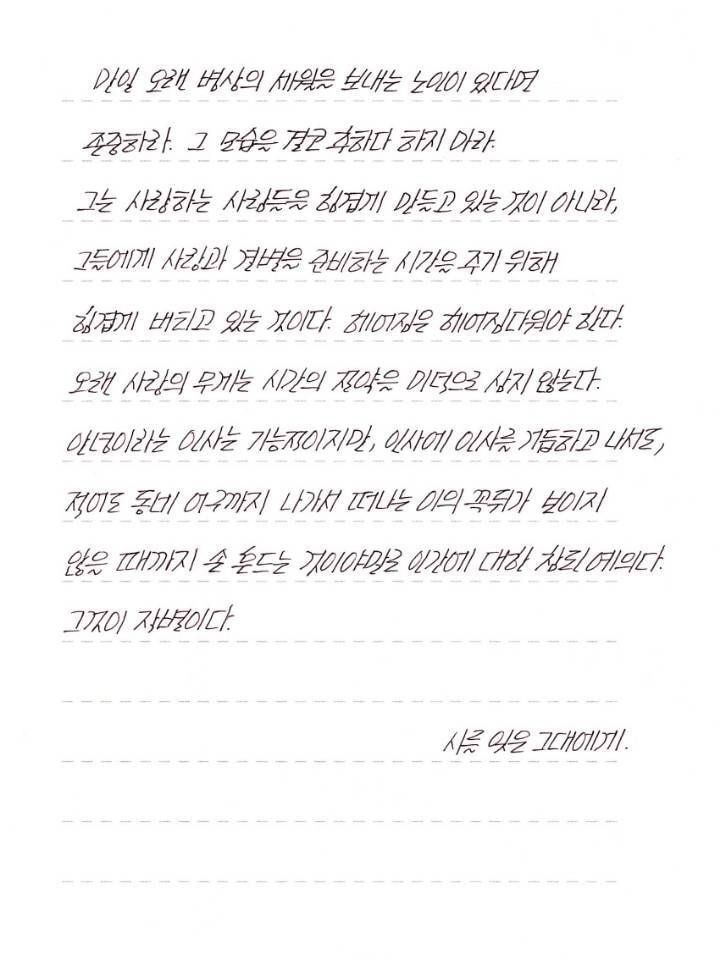 만일 오랜 병상의 세월을 보내는 노인이 있다면
존중하라. 그 모습을 결코 추하다 하지 마라.
그는 사랑하는 사람들을 힘겹게 만들고 있는 것이 아니라,
그들에게 사랑과 결별을 준비하는 시간을 주기 위해
힘겹게 버티고 있는 것이다. 헤어짐은 헤어짐다워야 한다.
오랜 사랑의 무게는 시간의 절약을 미덕으로 삼지 않는다.
안녕이라는 인사는 기능적이지만, 인사에 인사를 거듭하고 나서도,
적어도 동네 어귀까지 나가서 떠나는 이의 꼭뒤가 보이지
않을 때까지 손 흔드는 것이야말로 인간에 대한 참된 예의다.
그것이 작별이다.
시를 잊은 그대에게.